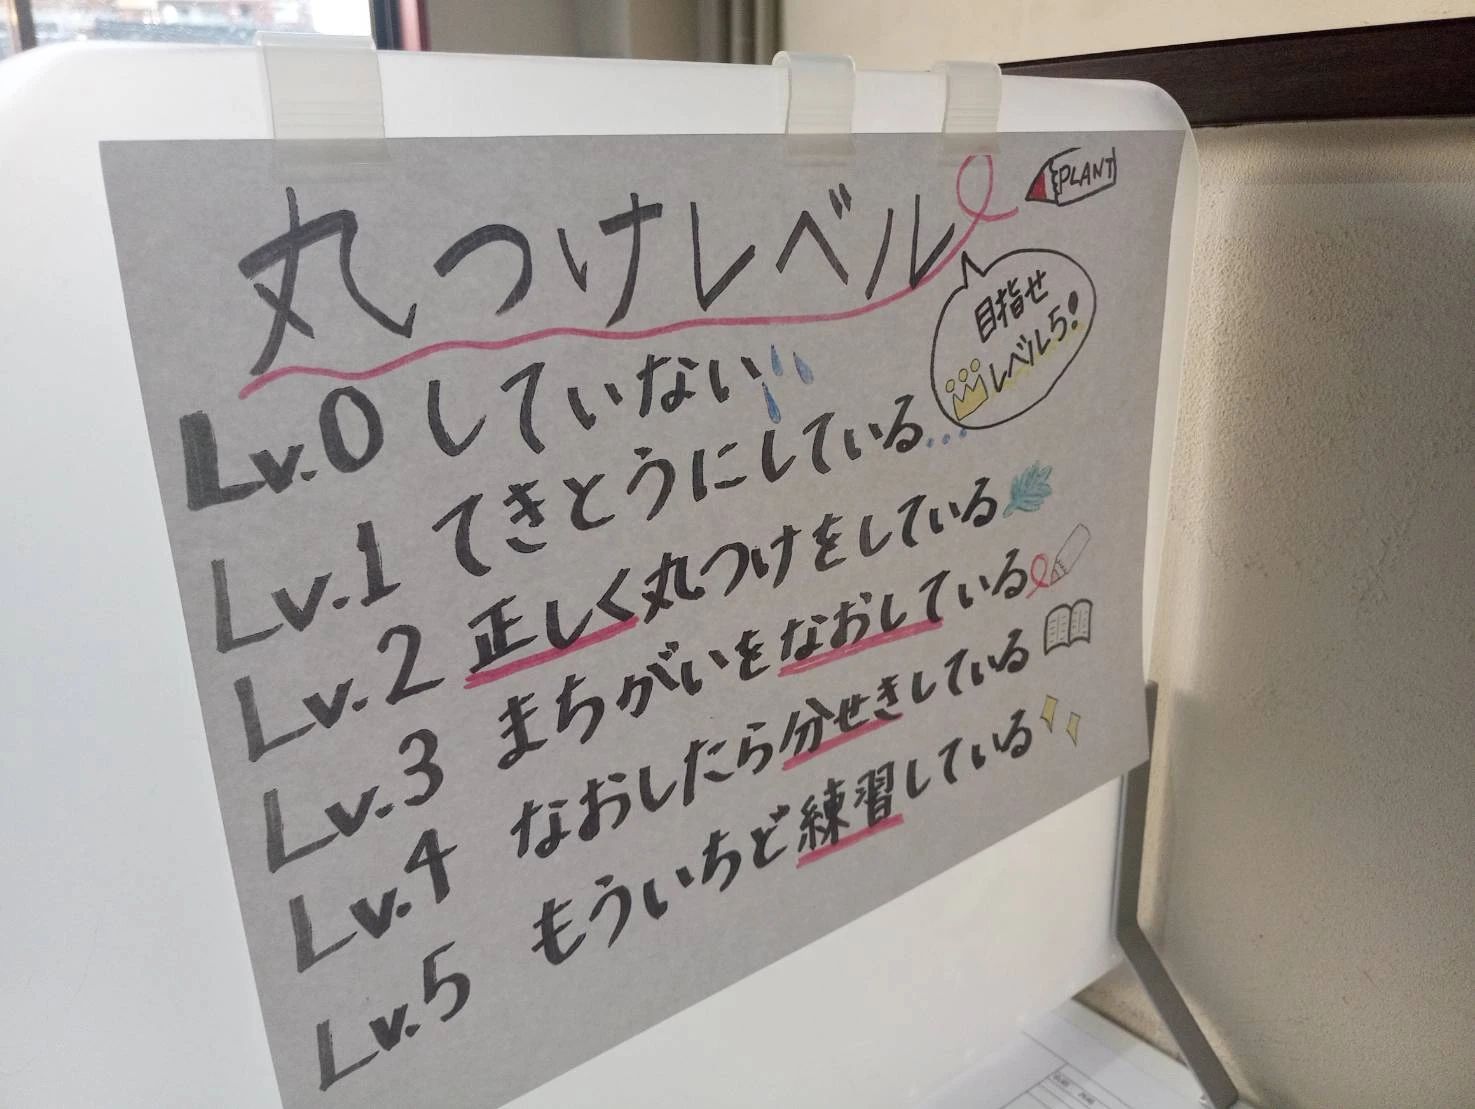 丸つけレベル
PLANT
目指せ
レベル5!
Lv.0 していない
Lv.1 てきとうにしている...
Lv.2 正しく丸つけをしている
Lv.3 まちがいをなおしている
Lv.4 なおしたら分せきしている
Lv.5 もういちど練習している